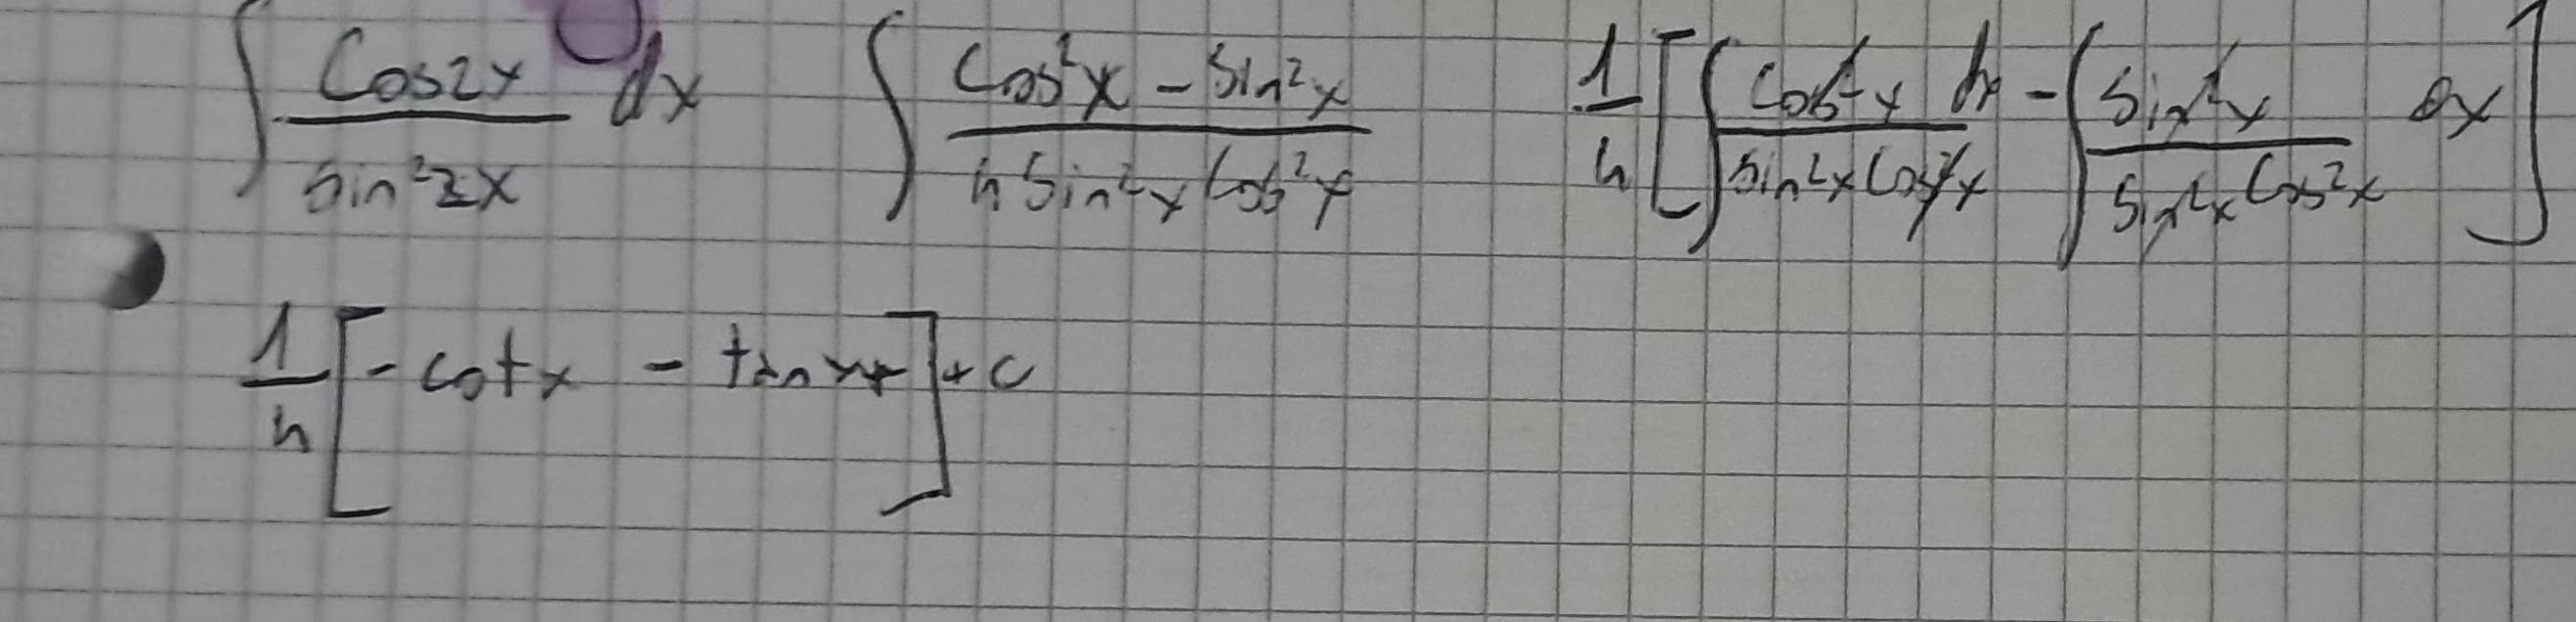 ∫ cos2x / sin²2x dx ∫ cos²x - sin²x / 4 sin²x cos²x 1/4 [ ∫ cos²x dx / sin²x cos²x - ∫ sin²x / sin²x cos²x dx ]
1/4 [ - cotx - tanx ] + c